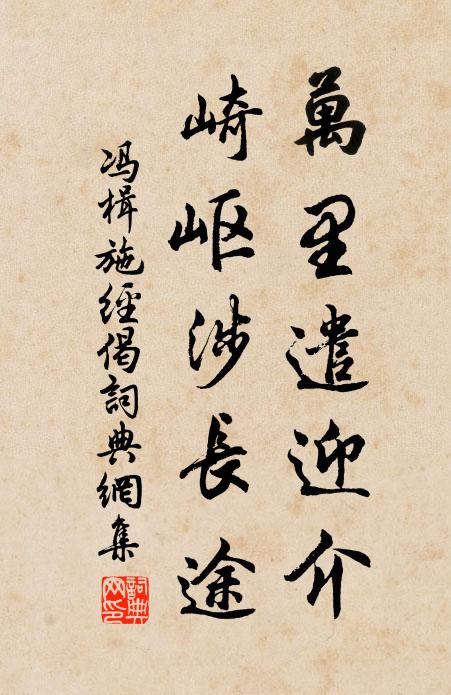 萬里遣迎介
崎岖涉長途
冯楫施經偈詞典網集
詞典
网印